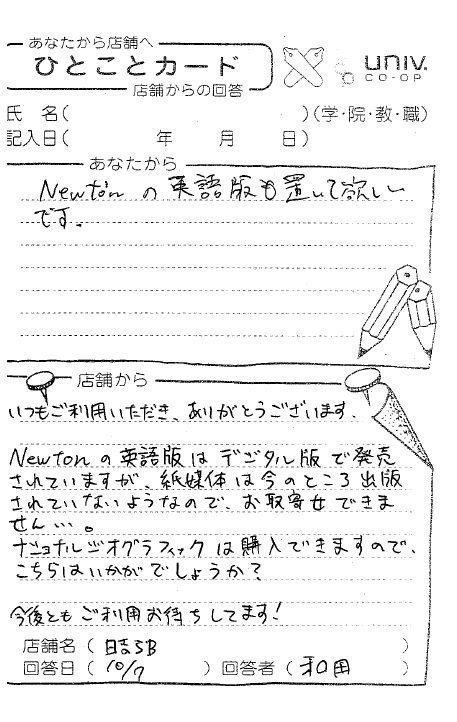 あなたから店舗へ
ひとことカード
店舗からの回答
univ.
CO-OP
氏 名( )(学・院・教・職)
記入日( 年 月 日)
あなたから
Newtonの英語版も置いて欲しい
です.
店舗から
いつもご利用いただき、ありがとうございます.
Newtonの英語版はデジタル版で発売
されていますが、紙媒体は今のところ出版
されていないようなので、お取寄せできま
せん…。
ナショナルジオグラフィックは購入できますので、
こちらはいかがでしょうか?
今後ともご利用お待ちしてます!
店舗名( 日吉SB )
回答日( 10/7 )回答者( 和田 )